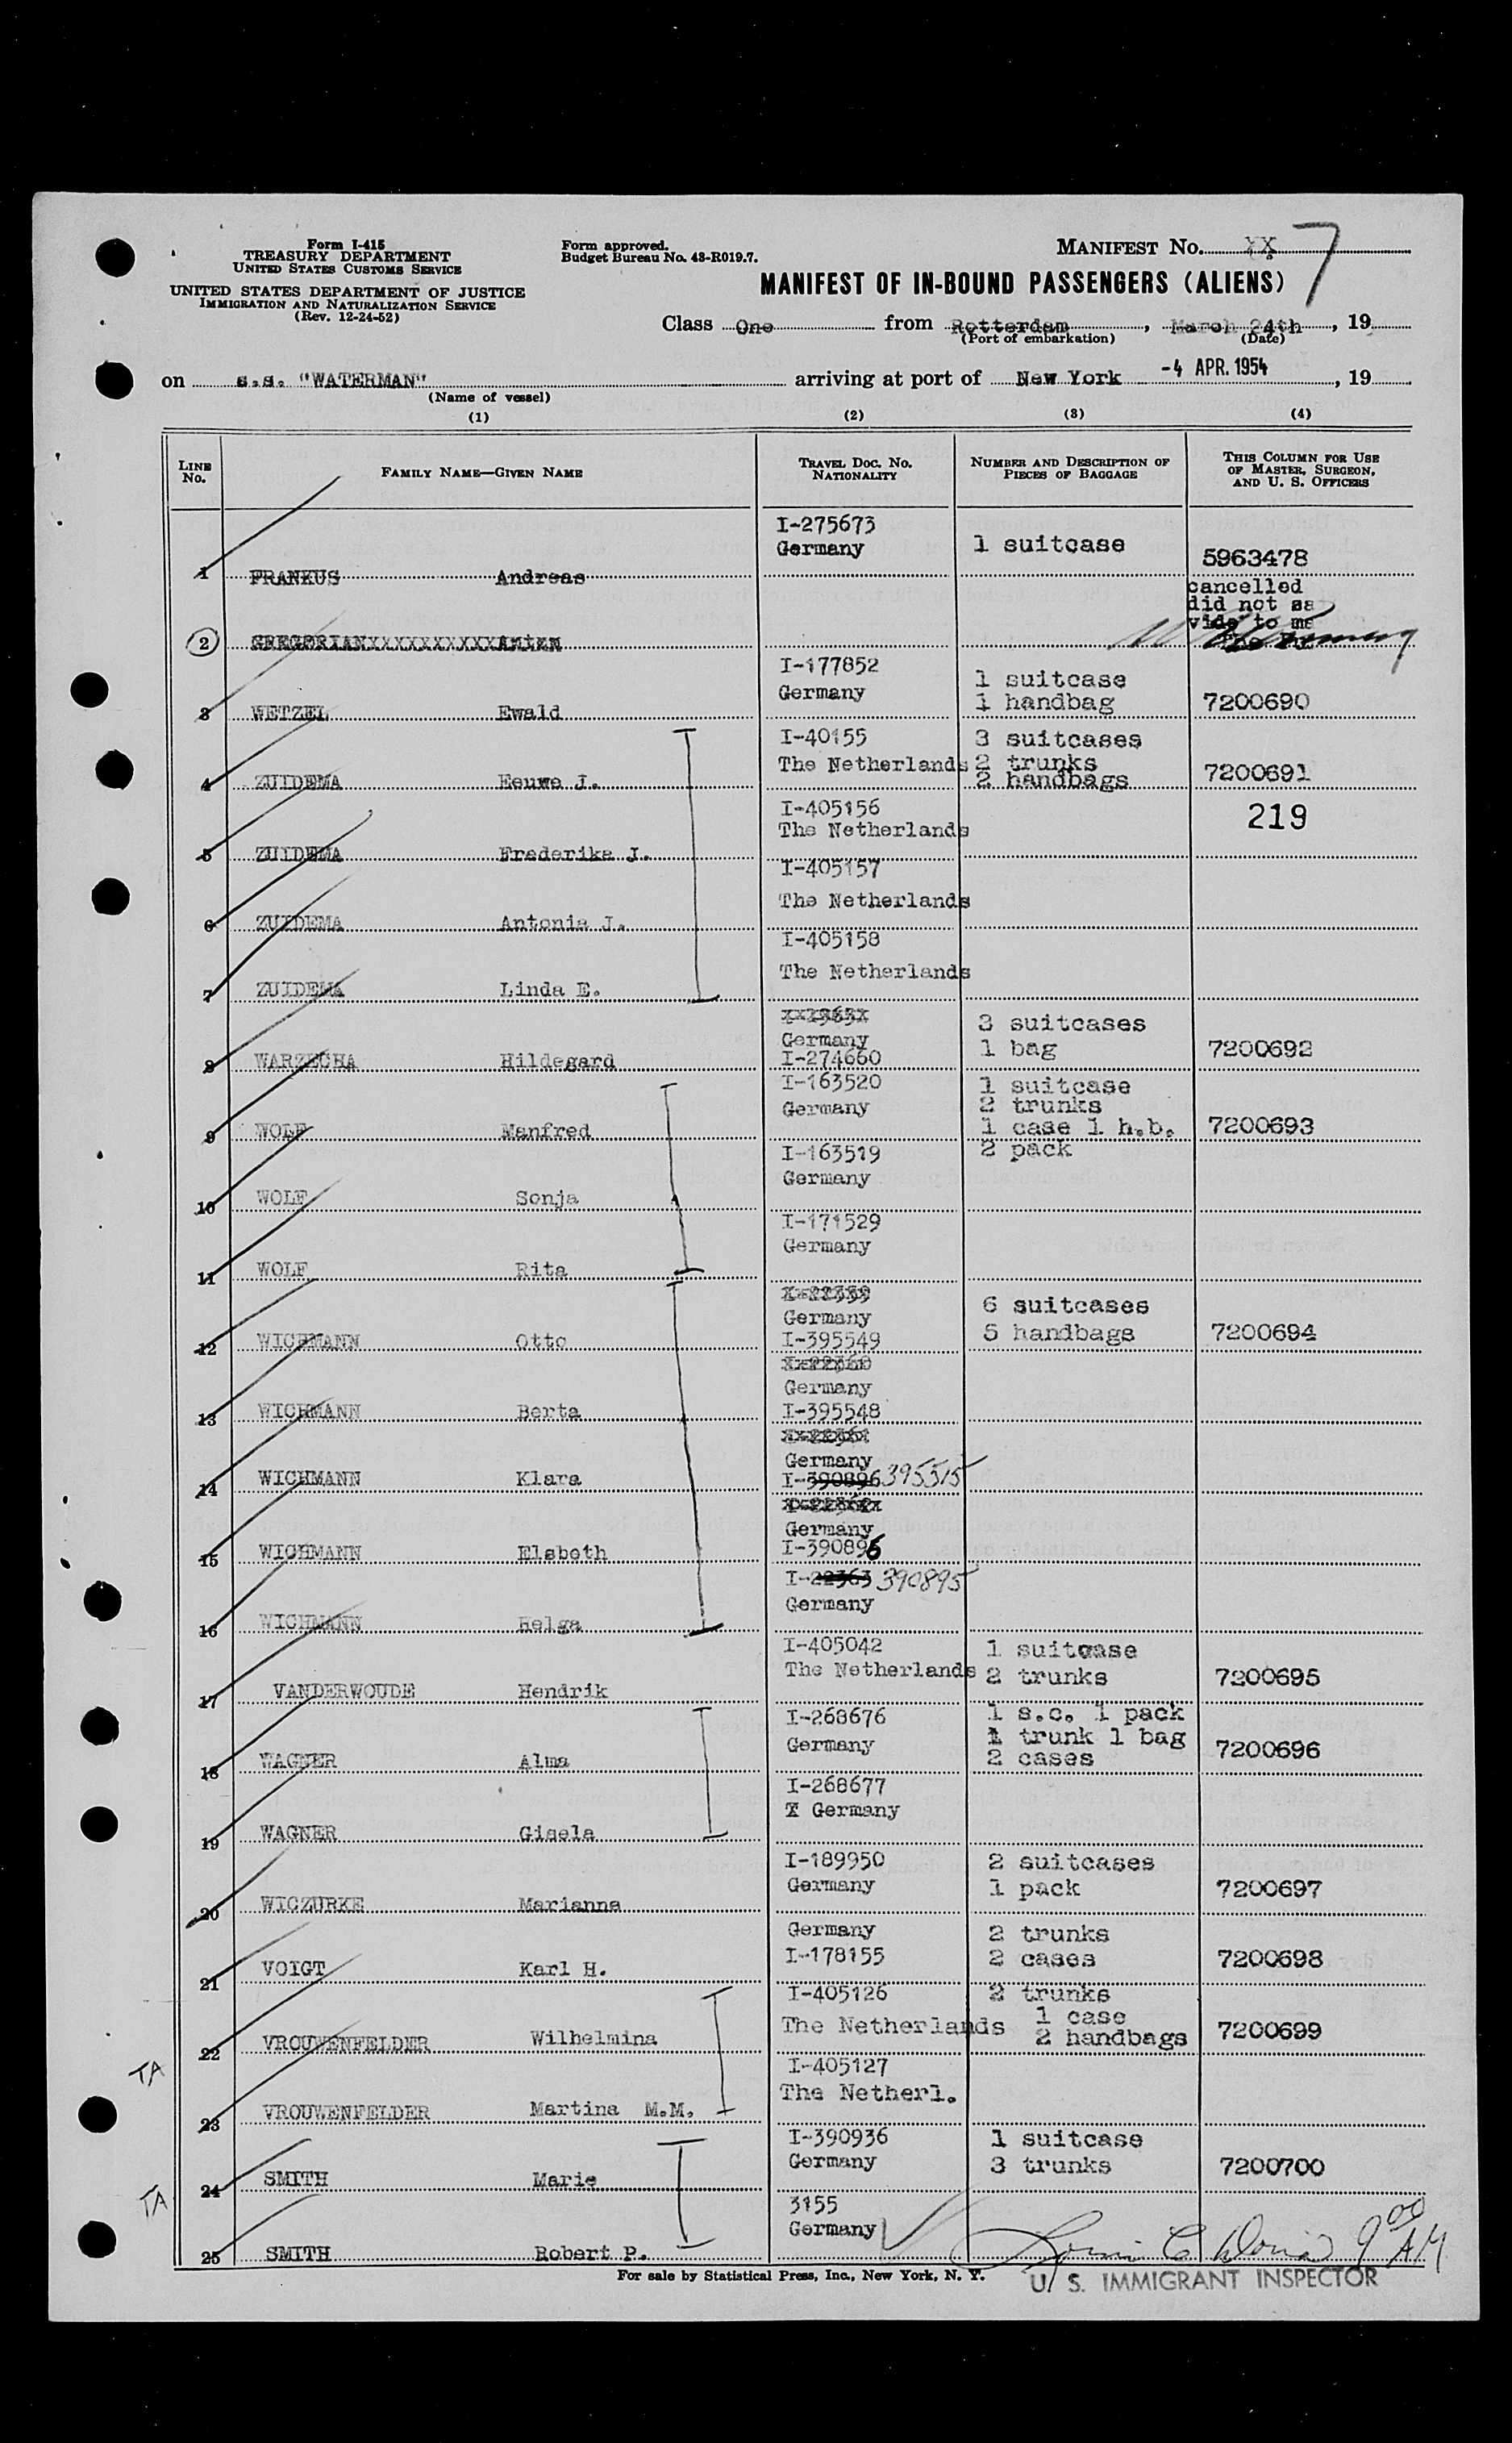 Form I-415
TREASURY DEPARTMENT
UNITED STATES CUSTOMS SERVICE
UNITED STATES DEPARTMENT OF JUSTICE
IMMIGRATION AND NATURALIZATION SERVICE
(Rev. 12-24-52)
Form approved.
Budget Bureau No. 43-R019.7.
MANIFEST No. XX 7
MANIFEST OF IN-BOUND PASSENGERS (ALIENS)
Class One from Rotterdam, March 24th, 19
(Port of embarkation) (Date)
on s.s. "WATERMAN" arriving at port of New York -4 APR. 1954, 19
(Name of vessel)
(1) (2) (3) (4)
LINE No. FAMILY NAME—GIVEN NAME TRAVEL DOC. No. NATIONALITY NUMBER AND DESCRIPTION OF PIECES OF BAGGAGE THIS COLUMN FOR USE OF MASTER, SURGEON, AND U. S. OFFICERS
I-275673
Germany 1 suitcase
1 FRANKUS Andreas 5963478
cancelled
did not sa
vide to me
2 GREGORIANXXXXXXXXXX
I-177852
Germany 1 suitcase
3 WETZEL Ewald 1 handbag 7200690
I-40155 3 suitcases
The Netherlands 2 trunks
4 ZUIDEMA Eeuwe J. 2 handbags 7200691
I-405156 219
The Netherlands
5 ZUIDEMA Frederika J.
I-405157
The Netherlands
6 ZUIDEMA Antonia J.
I-405158
The Netherlands
7 ZUIDEMA Linda E.
3 suitcases
Germany 1 bag 7200692
8 WARZECHA Hildegard I-274660
I-163520 1 suitcase
Germany 2 trunks
9 WOLF Manfred 1 case 1 h.b. 7200693
I-163519 2 pack
Germany
10 WOLF Sonja
I-171529
Germany
11 WOLF Rita
Germany 6 suitcases
12 WICHMANN Otto I-395549 5 handbags 7200694
Germany
13 WICHMANN Berta I-395548
Germany
14 WICHMANN Klara I-390896 395515
Germany
15 WICHMANN Elsbeth I-390896
I-22363 390895
Germany
16 WICHMANN Helga
I-405042 1 suitcase
The Netherlands 2 trunks 7200695
17 VANDERWOUDE Hendrik
I-268676 1 s.c. 1 pack
Germany 1 trunk 1 bag
18 WAGNER Alma 2 cases 7200696
I-268677
X Germany
19 WAGNER Gisela
I-189950 2 suitcases
Germany 1 pack 7200697
20 WICZURKE Marianne
Germany 2 trunks
21 VOIGT Karl H. I-178155 2 cases 7200698
I-405126 2 trunks
The Netherlands 1 case
22 VROUWENFELDER Wilhelmina 2 handbags 7200699
TA
I-405127
The Netherl.
23 VROUWENFELDER Martina M.M.
I-390936 1 suitcase
Germany 3 trunks 7200700
24 SMITH Marie
TA
3155
Germany
25 SMITH Robert P. 9 00 AM
For sale by Statistical Press, Inc., New York, N. Y.
U. S. IMMIGRANT INSPECTOR